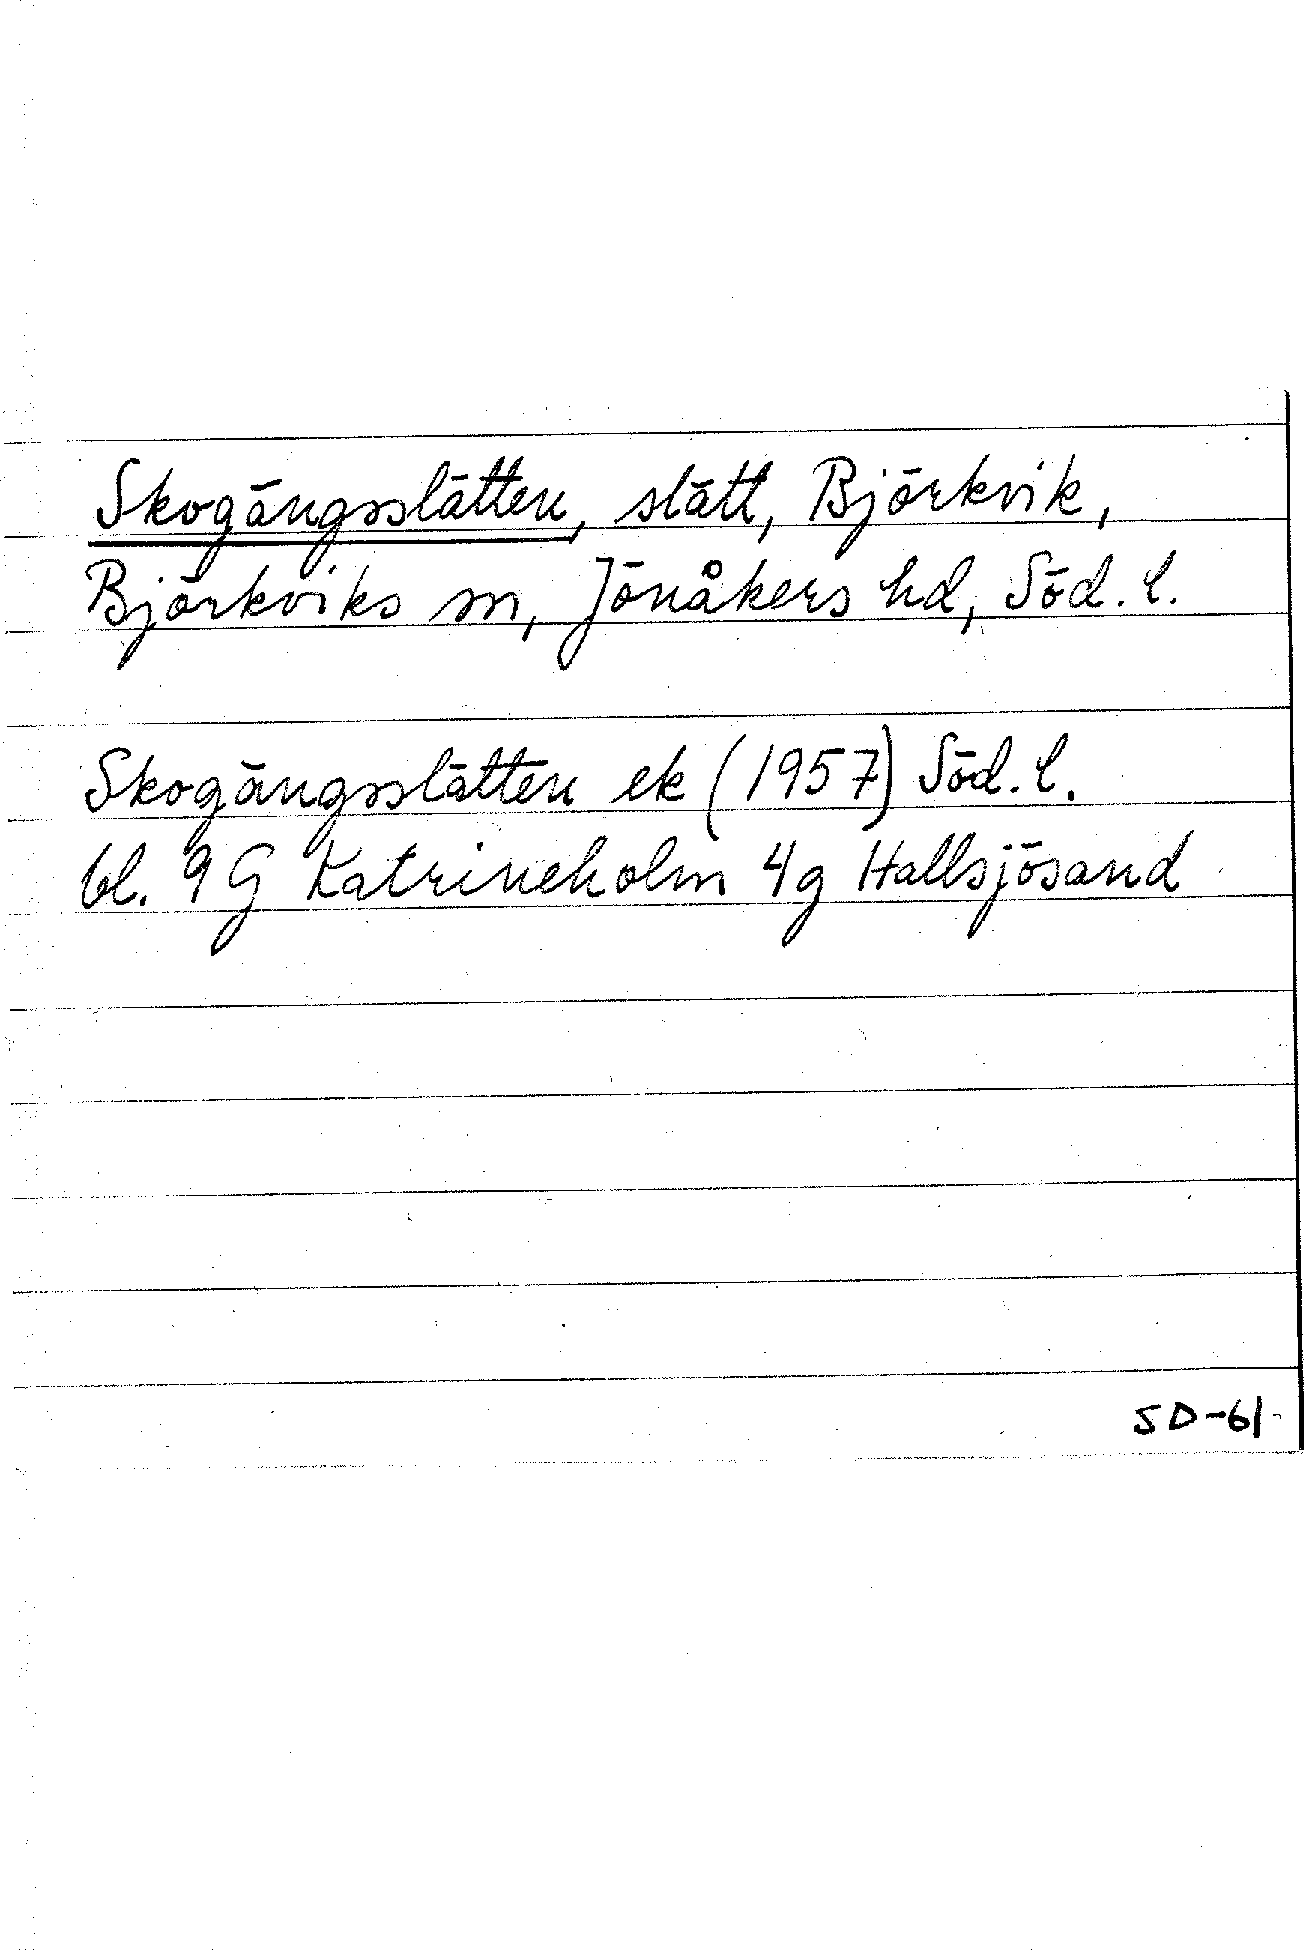 Skogängsslätten, slätt, Björkvik,
Björkviks sn, Jönåkers hd, Söd. l.
Skogängsslätten ek (1957) Söd. l.
bl. 9G Katrineholm 4g Hallsjösand
SD-61